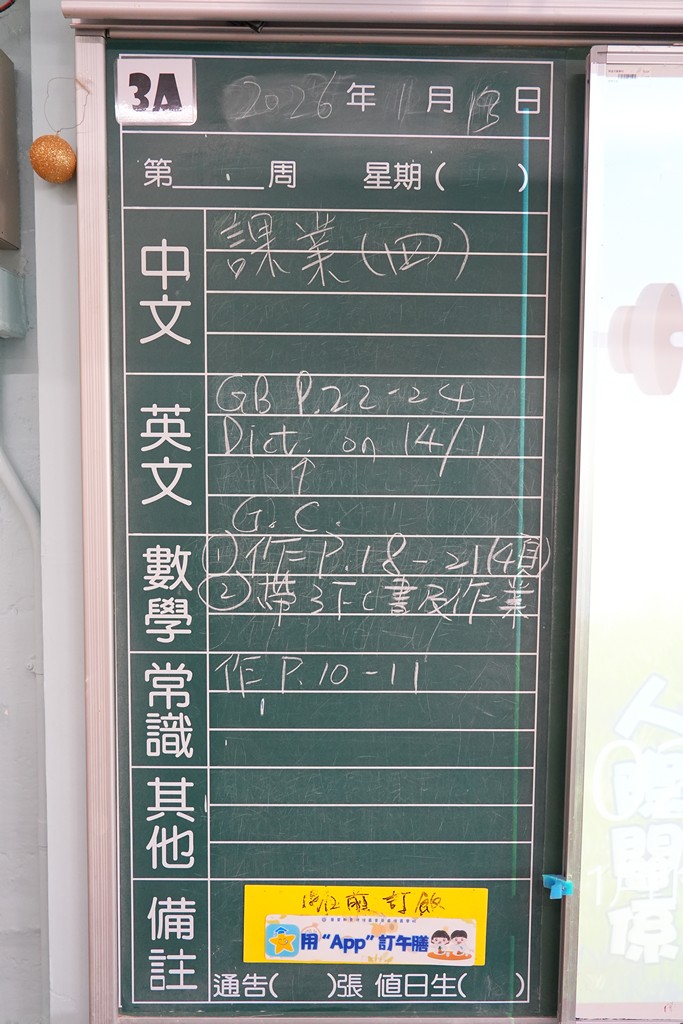 3A
2026年1月13日
第 周 星期( )
中文
課業(四)
英文
GB P.22-24
Dict. on 14/1
↑
G.C.
數學
①作P.18-21(4頁)
②帶3下C書及作業
常識
作P.10-11
其他
備註
訂飯
用“App”訂午膳
通告( )張 值日生( )
人際關係